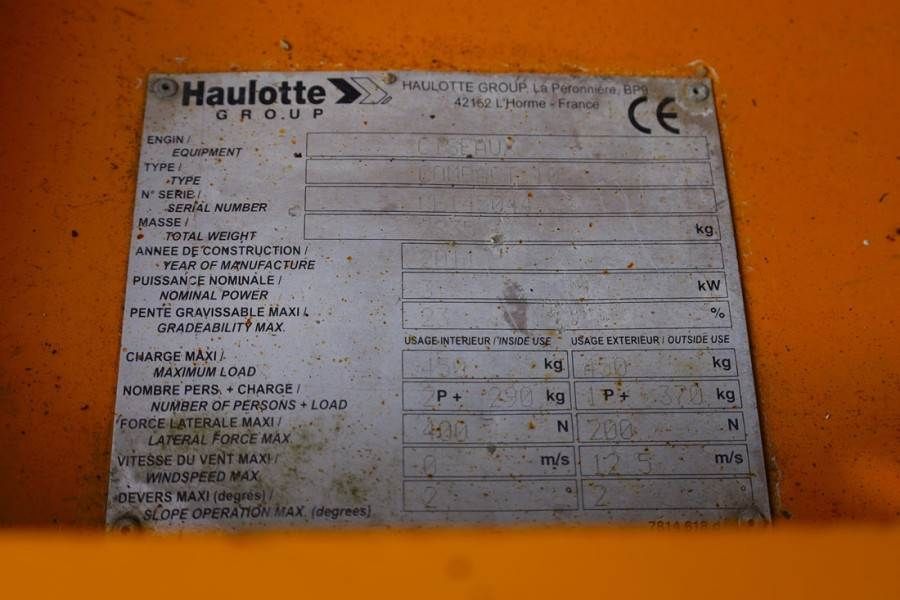 Haulotte
GROUP
HAULOTTE GROUP, La Péronnière, BP9
42152 L'Horme - France
CE
ENGIN /
EQUIPMENT
CISEAUX
TYPE /
TYPE
COMPACT 10
N° SERIE /
SERIAL NUMBER
MASSE /
TOTAL WEIGHT
kg
ANNEE DE CONSTRUCTION /
YEAR OF MANUFACTURE
PUISSANCE NOMINALE /
NOMINAL POWER
kW
PENTE GRAVISSABLE MAXI /
GRADEABILITY MAX.
%
USAGE INTERIEUR / INSIDE USE USAGE EXTERIEUR / OUTSIDE USE
CHARGE MAXI /
MAXIMUM LOAD
450 kg 450 kg
NOMBRE PERS. + CHARGE /
NUMBER OF PERSONS + LOAD
2 P + 290 kg 1 P + 370 kg
FORCE LATERALE MAXI /
LATERAL FORCE MAX.
400 N 200 N
VITESSE DU VENT MAXI /
WINDSPEED MAX.
0 m/s 12.5 m/s
DEVERS MAXI (degrés) /
SLOPE OPERATION MAX. (degrees)
2 ° 2 °
7814 618